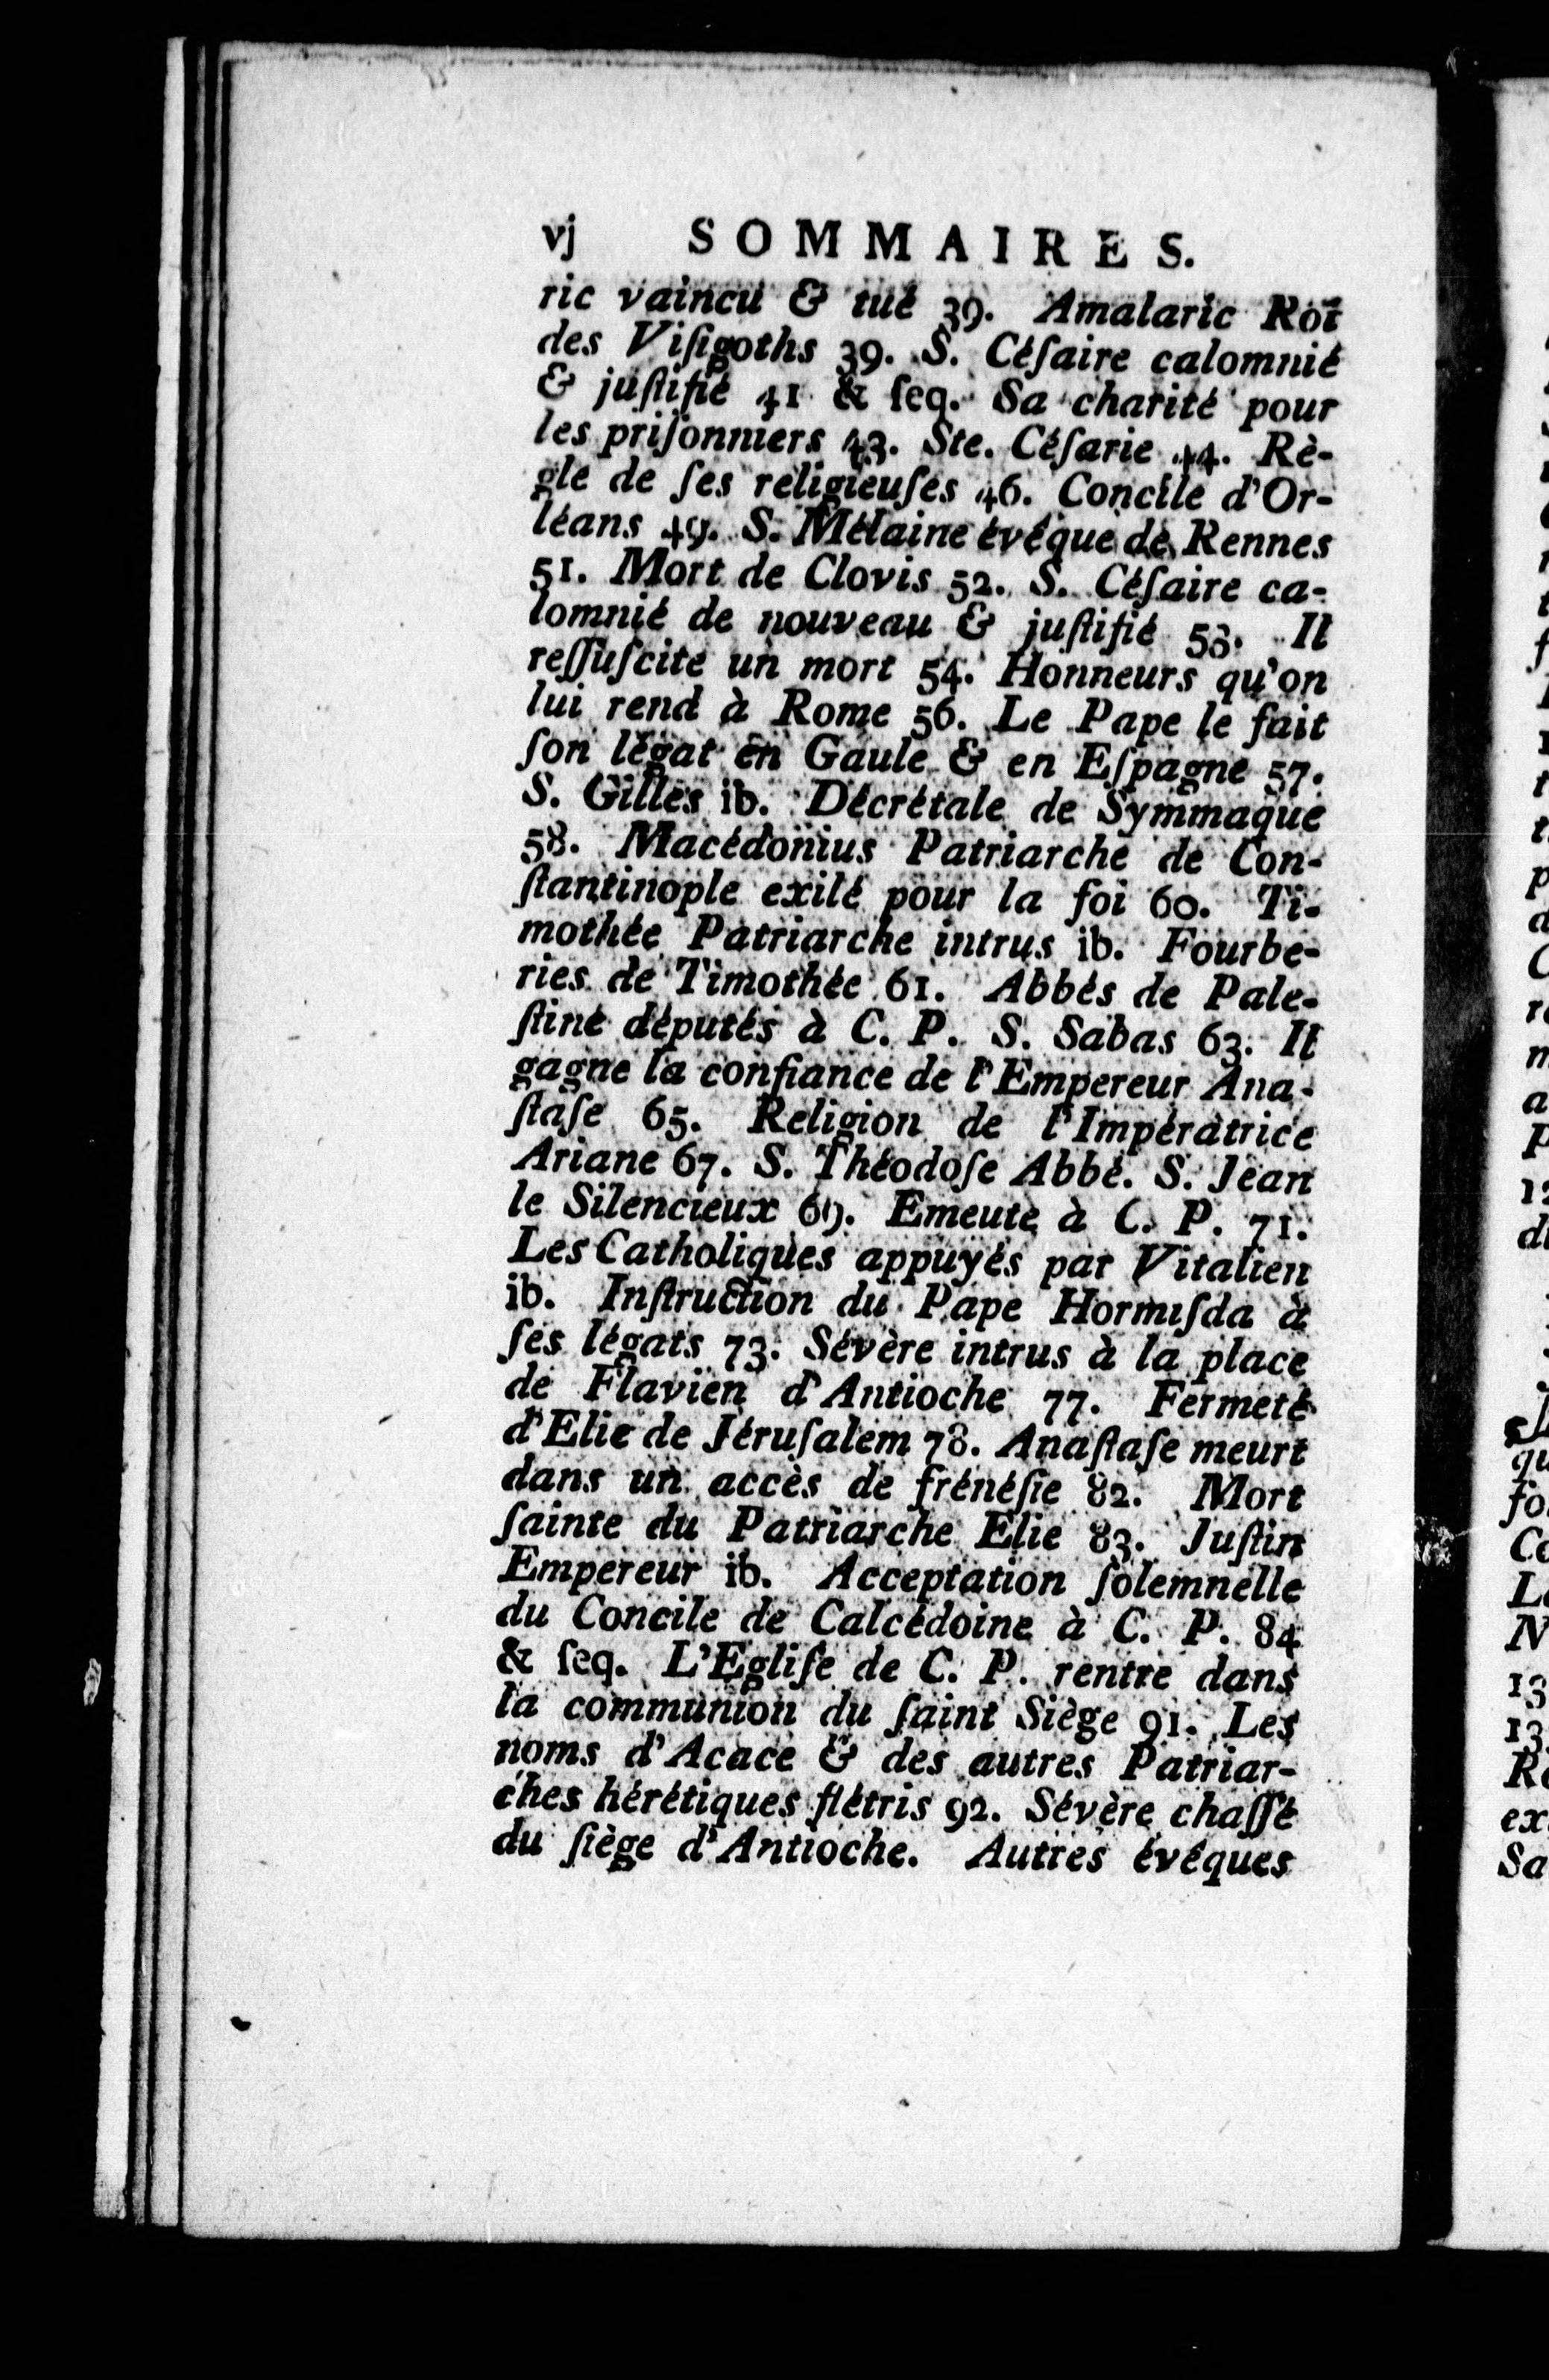 vj SOMMAIRES.
ric vaincu & tué 39. Amalaric Roi
des Viſigoths 39. S. Céſaire calomnié
& juſtifié 41 & ſeq. Sa charité pour
les priſonniers 43. Ste. Céſarie 44. Rè-
gle de ſes religieuſes 46. Concile d'Or-
léans 49. S. Mélaine évêque de Rennes
51. Mort de Clovis 52. S. Céſaire ca-
lomnié de nouveau & juſtifié 53. Il
reſſuſcite un mort 54. Honneurs qu'on
lui rend à Rome 56. Le Pape le fait
ſon légat en Gaule & en Eſpagne 57.
S. Gilles ib. Décrétale de Symmaque
58. Macédonius Patriarche de Con-
ſtantinople exilé pour la foi 60. Ti-
mothée Patriarche intrus ib. Fourbe-
ries de Timothée 61. Abbés de Pale-
ſtine députés à C. P. S. Sabas 63. Il
gagne la confiance de l'Empereur Ana-
ſtaſe 65. Religion de l'Impératrice
Ariane 67. S. Théodoſe Abbé. S. Jean
le Silencieux 69. Emeute à C. P. 71.
Les Catholiques appuyés par Vitalien
ib. Inſtruction du Pape Hormiſda à
ſes légats 73. Sévère intrus à la place
de Flavien d'Antioche 77. Fermeté
d'Elie de Jéruſalem 78. Anaſtaſe meurt
dans un accès de frénéſie 82. Mort
ſainte du Patriarche Elie 83. Juſtin
Empereur ib. Acceptation ſolemnelle
du Concile de Calcédoine à C. P. 84
& ſeq. L'Egliſe de C. P. rentre dans
la communion du ſaint Siège 91. Les
noms d'Acace & des autres Patriar-
ches hérétiques flétris 92. Sévère chaſſé
du ſiège d'Antioche. Autres évêques